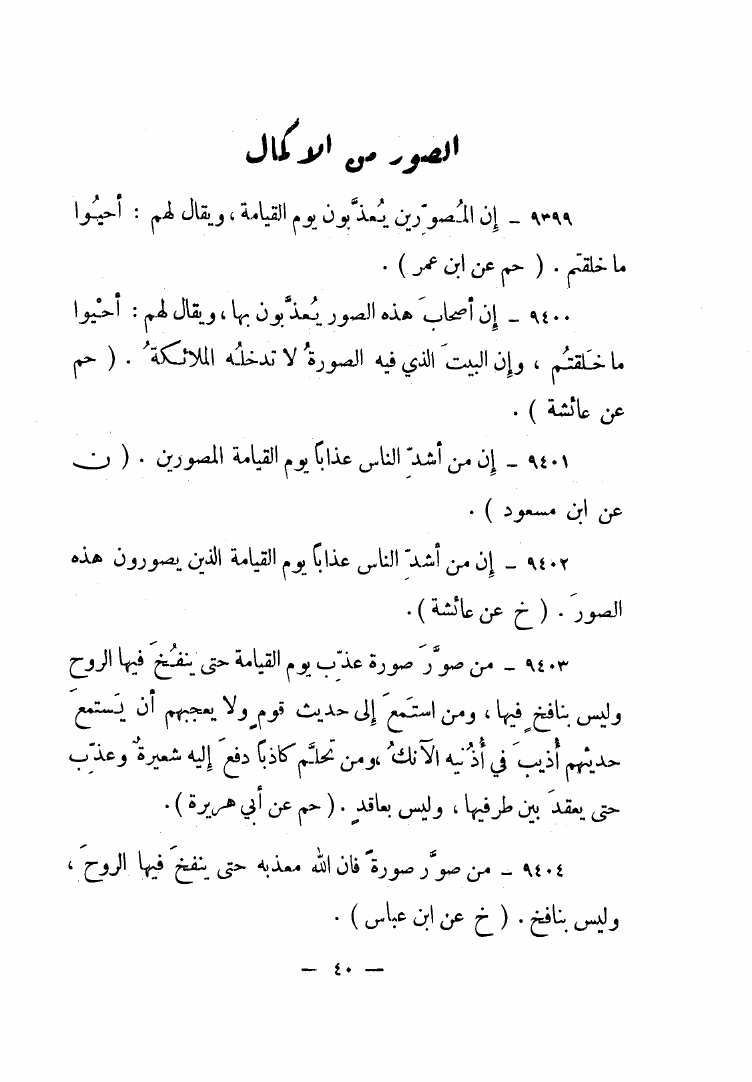 الصور من الاكمال
٩٣٩٩ ـ إن المُصوّرين يُعذَّبون يوم القيامة ، ويقال لهم : أحيُوا
ما خلقتم . ( حم عن ابن عمر ) .
٩٤٠٠ ـ إن أصحابَ هذه الصور يُعذَّبون بها ، ويقال لهم : أحْيوا
ما خَلقتُم ، وإن البيتَ الذي فيه الصورةُ لا تدخلُه الملائكةُ . ( حم
عن عائشة ) .
٩٤٠١ ـ إن من أشدِّ الناس عذاباً يوم القيامة المصورين . ( ن
عن ابن مسعود ) .
٩٤٠٢ ـ إن من أشدِّ الناس عذاباً يوم القيامة الذين يصورون هذه
الصورَ . ( خ عن عائشة ) .
٩٤٠٣ ـ من صوَّرَ صورة عذّب يوم القيامة حتى ينفُخَ فيها الروح
وليس بنافخٍ فيها ، ومن استَمعَ إلى حديث قومٍ ولا يعجبهم أن يَستمعَ
حديثهم أُذيبَ في أُذُنيه الآنكُ ، ومن تحلَّم كاذباً دفعَ إليه شعيرةٌ وعذّب
حتى يعقدَ بين طرفيها ، وليس بعاقدٍ . ( حم عن أبي هريرة ) .
٩٤٠٤ ـ من صوَّر صورةً فان الله معذبه حتى ينفخَ فيها الروحَ ،
وليس بنافخ . ( خ عن ابن عباس ) .
— ٤٠ —